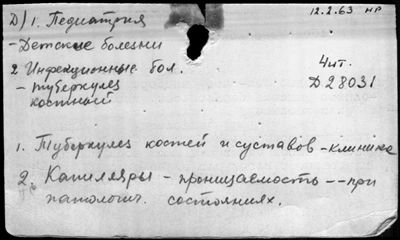 Д) 1. Педиатрия
12.2.63 нр
- Детские болезни
2 Инфекционные бол.
4ит.
- туберкулез
Д28031
костный
1. Туберкулез костей и суставов - клиника
2. Капилляры - проницаемость -- при
патологич. состояниях.